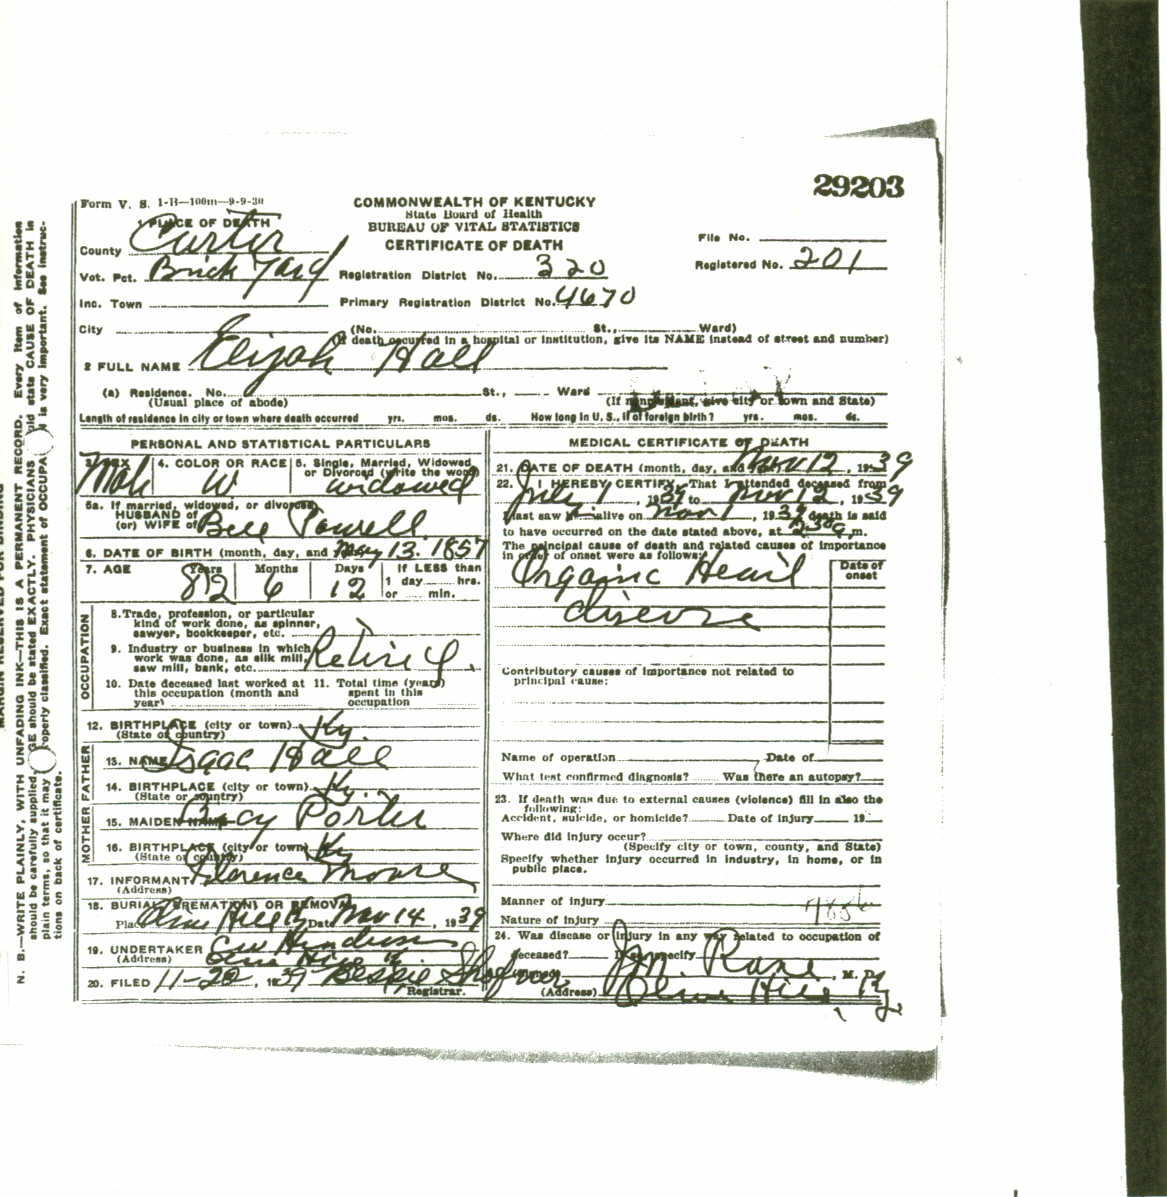 29203
Form V. S. 1-B—100m—9-9-30
COMMONWEALTH OF KENTUCKY
State Board of Health
BUREAU OF VITAL STATISTICS
CERTIFICATE OF DEATH
1 PLACE OF DEATH
County Carter
Vot. Pct. Brick Yard
Inc. Town
City
Registration District No. 320
Primary Registration District No. 4670
File No.
Registered No. 201
(No. St., Ward)
(If death occurred in a hospital or institution, give its NAME instead of street and number)
2 FULL NAME Elijah Hall
(a) Residence. No. St., Ward
(Usual place of abode) (If nonresident, give city or town and State)
Length of residence in city or town where death occurred yrs. mos. ds. How long in U. S., if of foreign birth? yrs. mos. ds.
PERSONAL AND STATISTICAL PARTICULARS
3. SEX Male
4. COLOR OR RACE W
5. Single, Married, Widowed or Divorced (write the word) widowed
5a. If married, widowed, or divorced
HUSBAND of
(or) WIFE of Bell Powell
6. DATE OF BIRTH (month, day, and May 13. 1857
7. AGE Years 82 Months 6 Days 12 If LESS than
1 day hrs.
or min.
OCCUPATION
8. Trade, profession, or particular
kind of work done, as spinner,
sawyer, bookkeeper, etc.
9. Industry or business in which
work was done, as silk mill,
saw mill, bank, etc. Retired
10. Date deceased last worked at
this occupation (month and
year)
11. Total time (years)
spent in this
occupation
12. BIRTHPLACE (city or town) Ky.
(State or country)
FATHER
13. NAME Isaac Hall
14. BIRTHPLACE (city or town) Ky.
(State or country)
MOTHER
15. MAIDEN NAME Porter
16. BIRTHPLACE (city or town) Ky
(State or country)
17. INFORMANT Florence Moore
(Address)
18. BURIAL, CREMATION, OR REMOVAL
Place Olive Hill Ky Date Nov 14, 1939
19. UNDERTAKER
(Address) Olive Hill Ky
20. FILED 11-20, 1939 Bessie
Registrar.
MEDICAL CERTIFICATE OF DEATH
21. DATE OF DEATH (month, day, and Nov 12, 1939
22. I HEREBY CERTIFY, That I attended deceased from
July 1, 1939 to Nov 12, 1939
I last saw alive on Nov 1, 1939 death is said
to have occurred on the date stated above, at m.
The principal cause of death and related causes of importance
in order of onset were as follows:
Date of onset
Organic Heart
disease
Contributory causes of importance not related to
principal cause:
Name of operation Date of
What test confirmed diagnosis? Was there an autopsy?
23. If death was due to external causes (violence) fill in also the
following:
Accident, suicide, or homicide? Date of injury 19
Where did injury occur?
(Specify city or town, county, and State)
Specify whether injury occurred in industry, in home, or in
public place.
Manner of injury
Nature of injury
24. Was disease or injury in any way related to occupation of
deceased? If so, specify
M. D.
(Address) Olive Hill Ky
N. B.—WRITE PLAINLY, WITH UNFADING INK—THIS IS A PERMANENT RECORD. Every item of information
should be carefully supplied. AGE should be stated EXACTLY. PHYSICIANS should state CAUSE OF DEATH in
plain terms, so that it may be properly classified. Exact statement of OCCUPA is very important. See instruc-
tions on back of certificate.